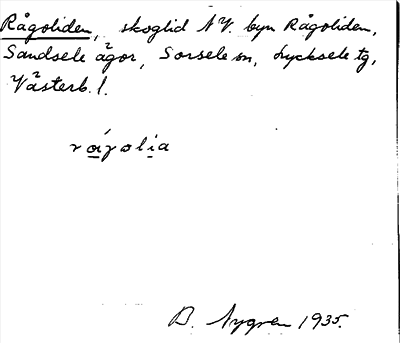 Rågoliden, skoglid NV. byn Rågoliden,
Sandsele ägor, Sorsele sn, Lycksele tg,
Västerb. l.
råγolia
B. Nygren 1935.